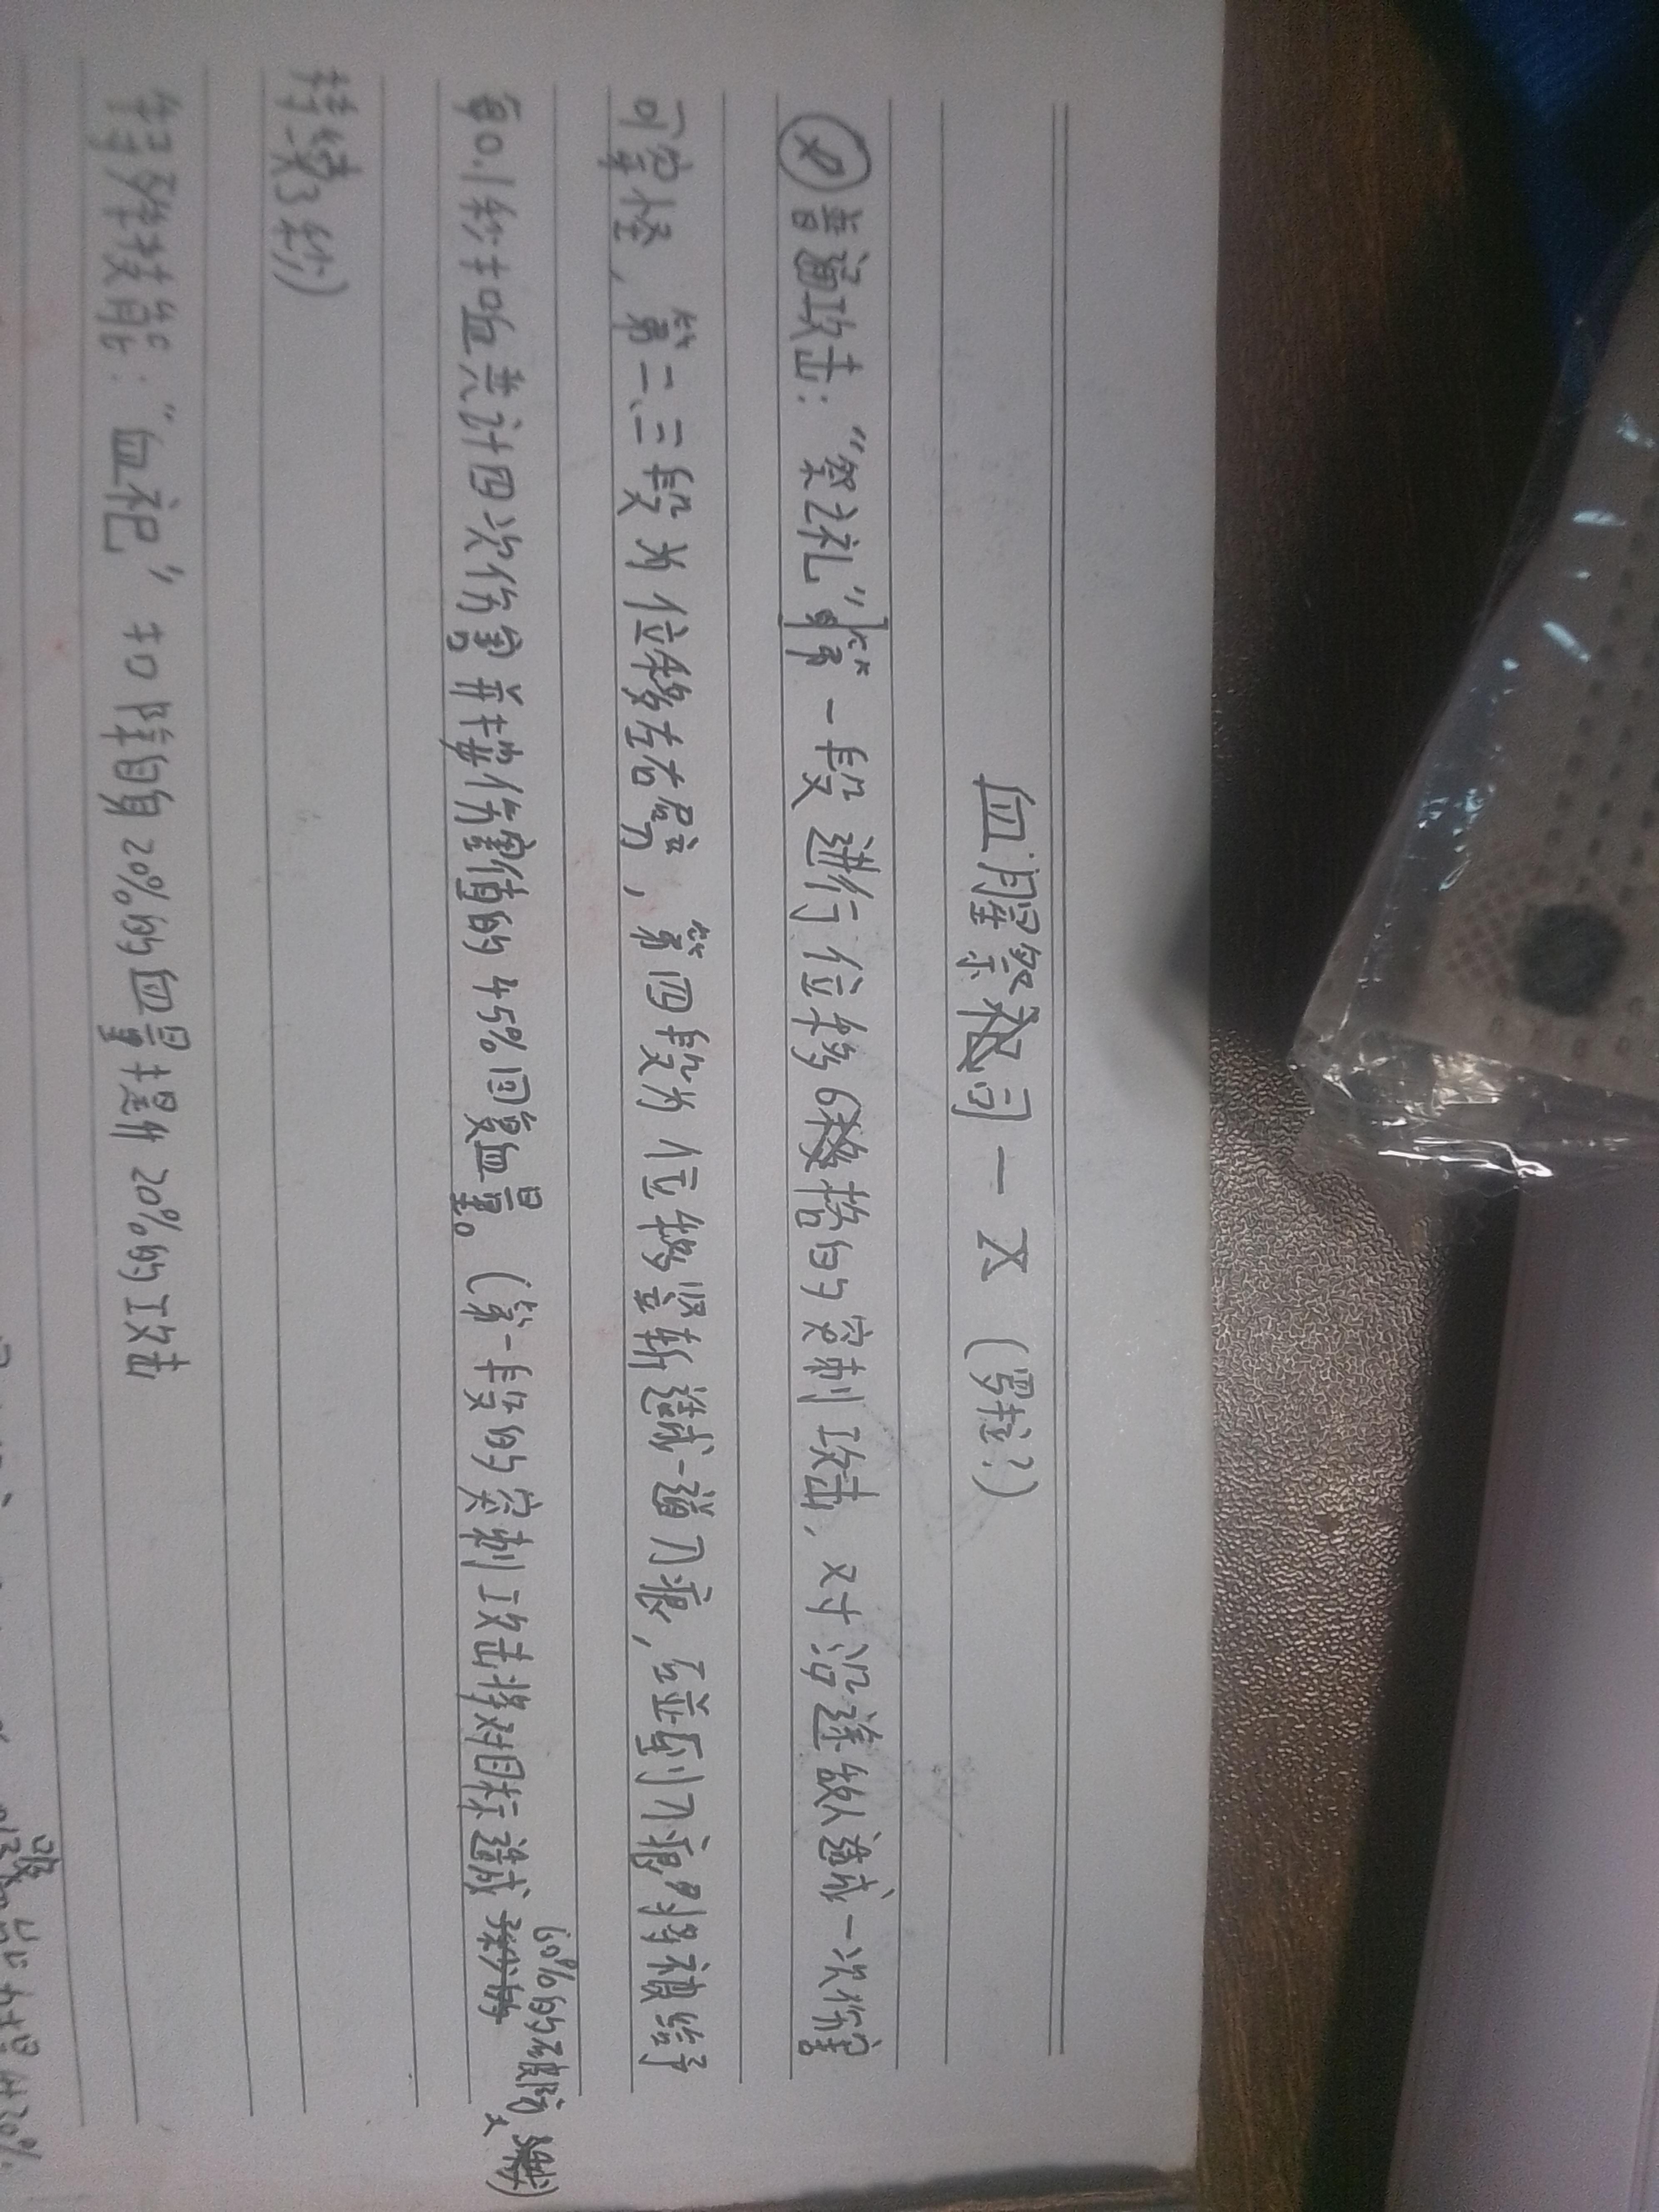 血腥祭司一X(罗拉?)
普通攻击:“祭礼”第一段进行位移6格的突刺攻击,对沿途敌人造成一次伤害
可穿怪,第二、三段为位移左右劈,第四段为位移竖斩造成一道刀痕,碰到刀痕将被给予
每0.1秒扣血共计四次伤害并按伤害值的45%回复血量。(第一段的突刺攻击将对目标造成60%的破防
持续3秒)
特殊技能:“血祀”扣除自身20%的血量提升20%的攻击